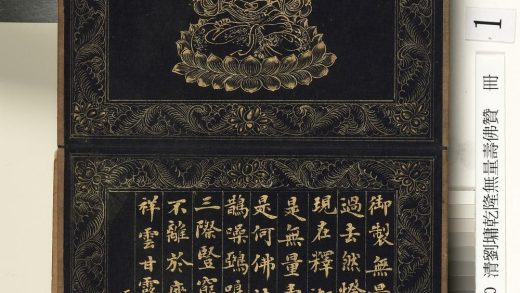 御製無量
過去然燈
現在釋迦
是無量壽
是何佛法
鵲噪鴉鳴
三際豎窮
不離於
祥雲甘露
1
清劉墉乾隆無量壽佛贊 冊